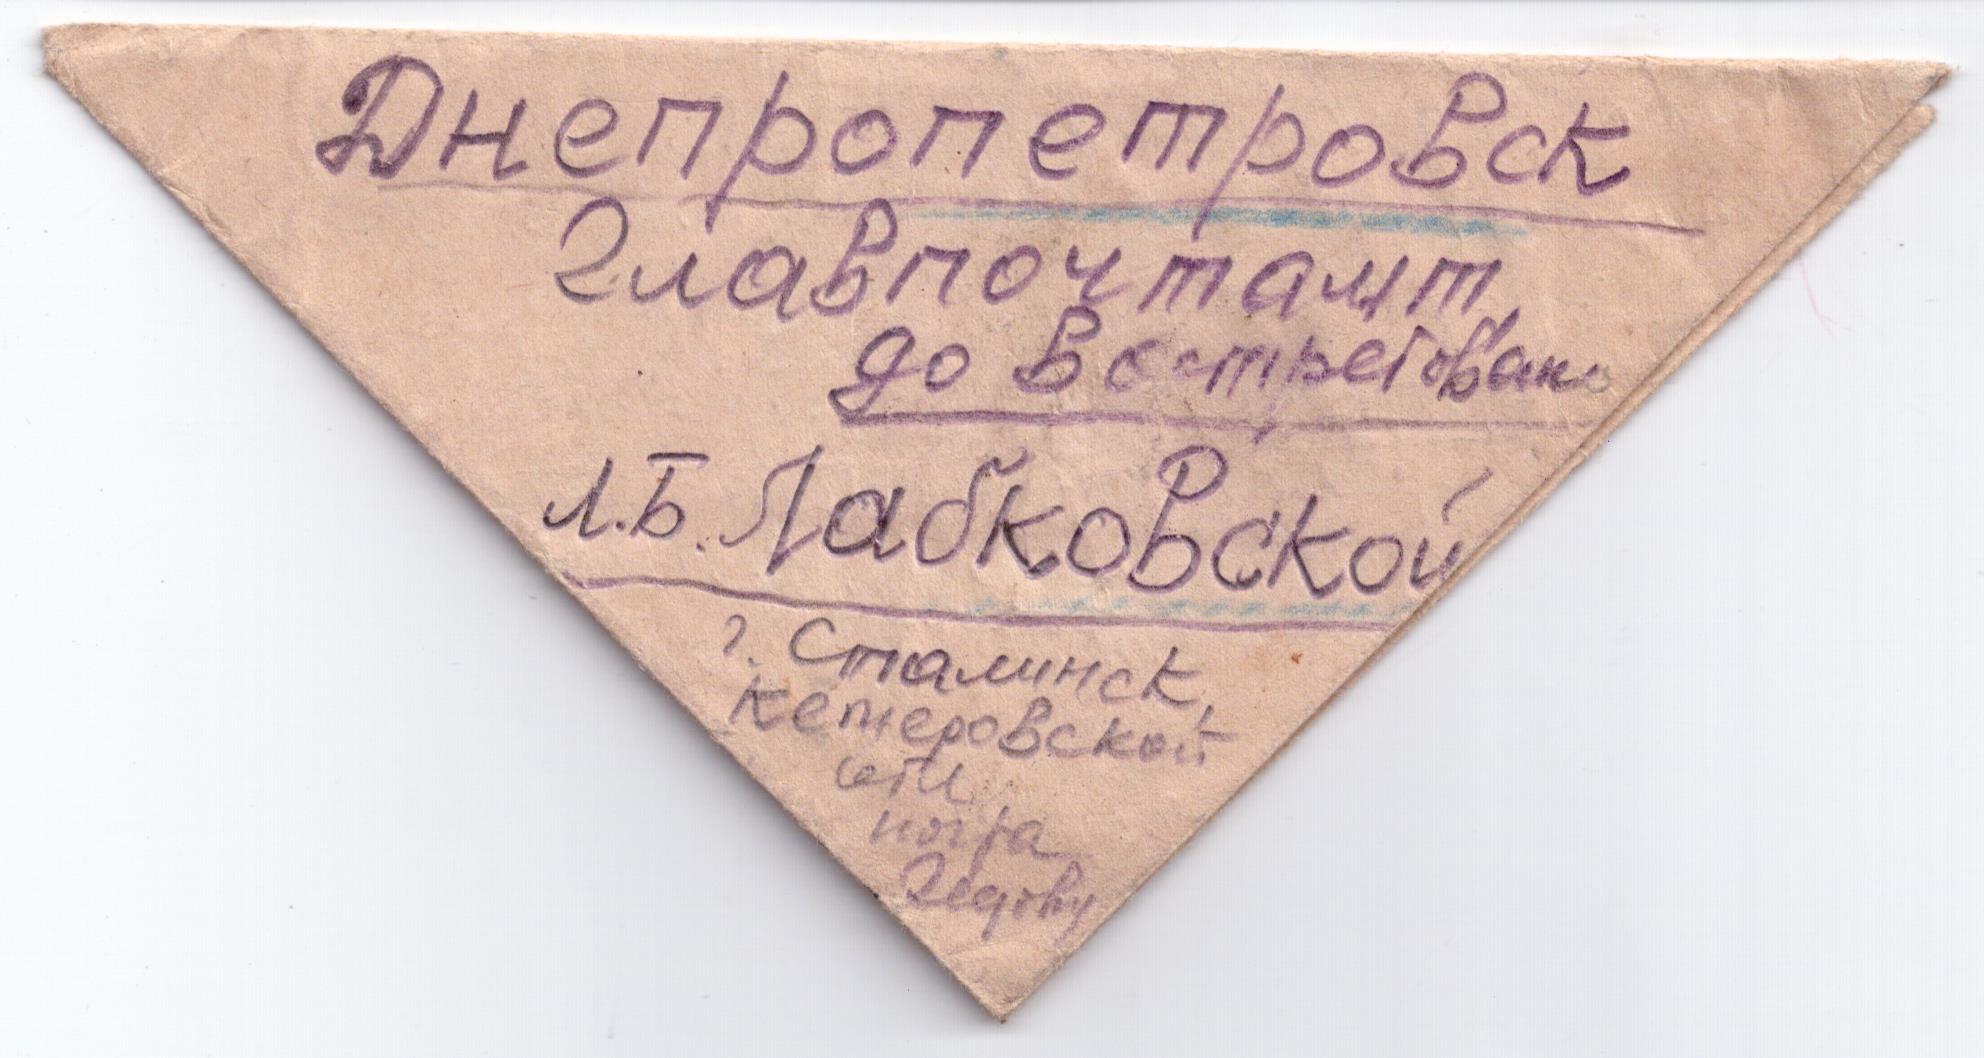 Днепропетровск
Главпочтамт
до востребован
Л.Б. Лабковской
г. Сталинск,
Кемеровской
обл
почта